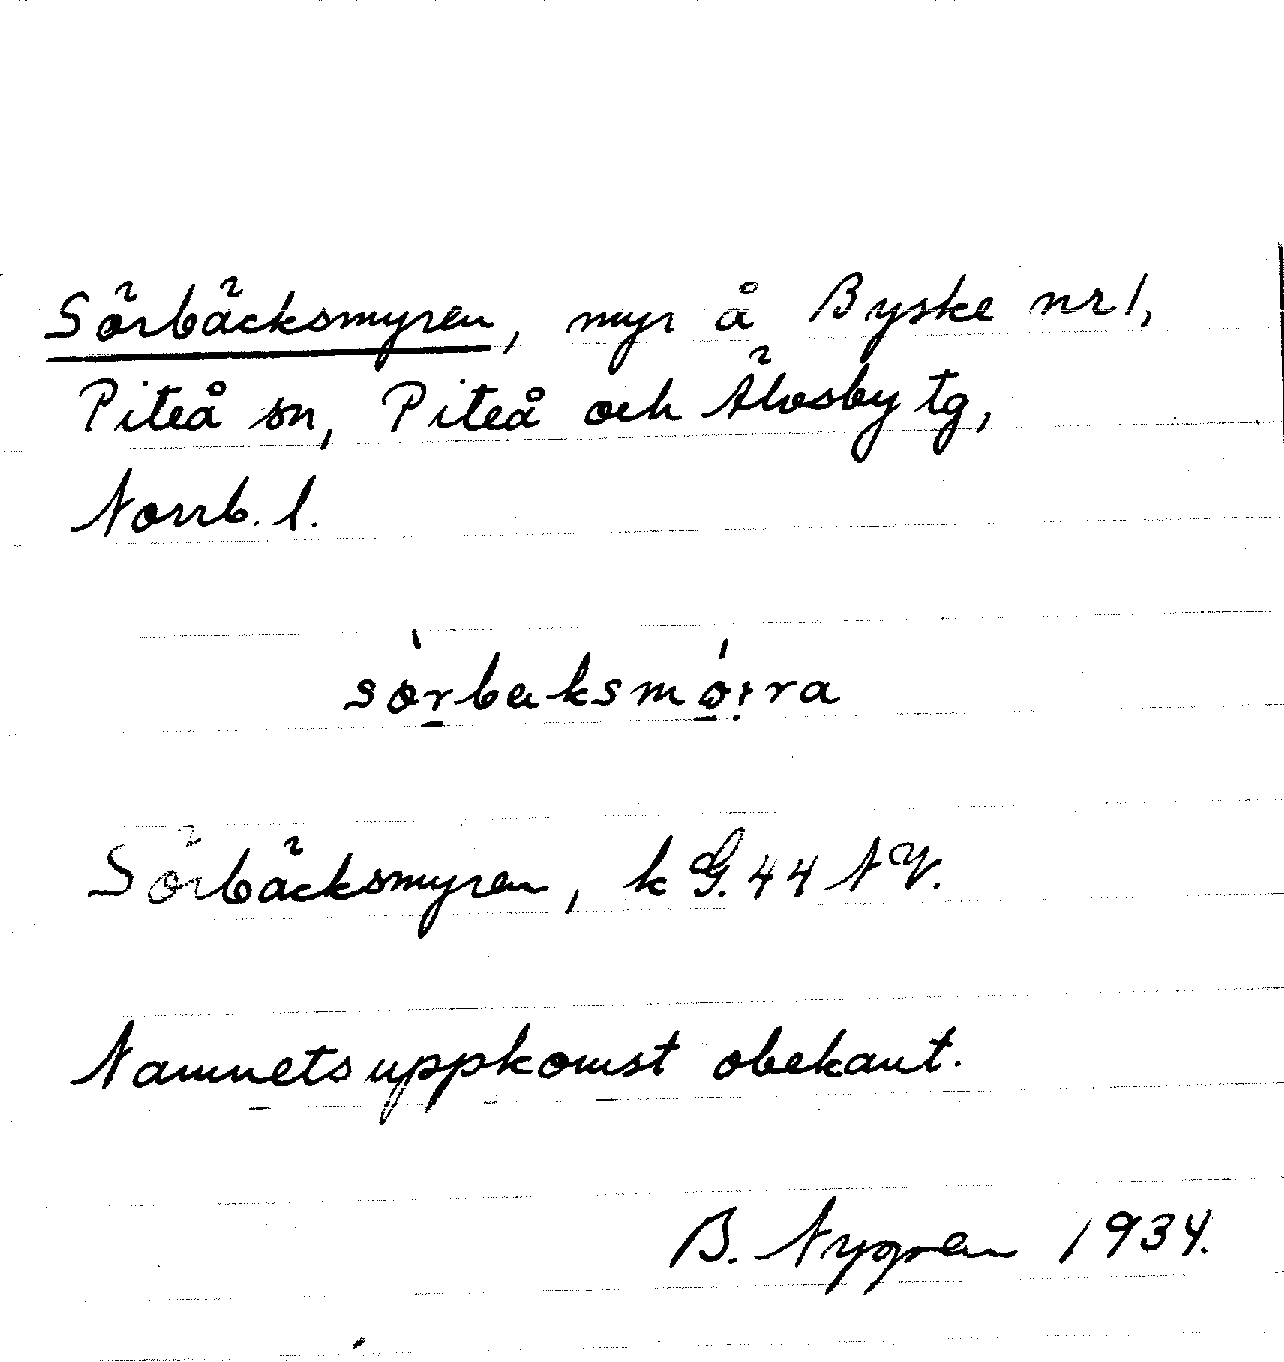 Sörbäcksmyren, myr å Byske nr 1,
Piteå sn, Piteå och Älvsby tg,
Norrb. l.
sørbæksmøira
Sörbäcksmyren, k G. 44 NV.
Namnets uppkomst obekant.
B. Nygren 1934.